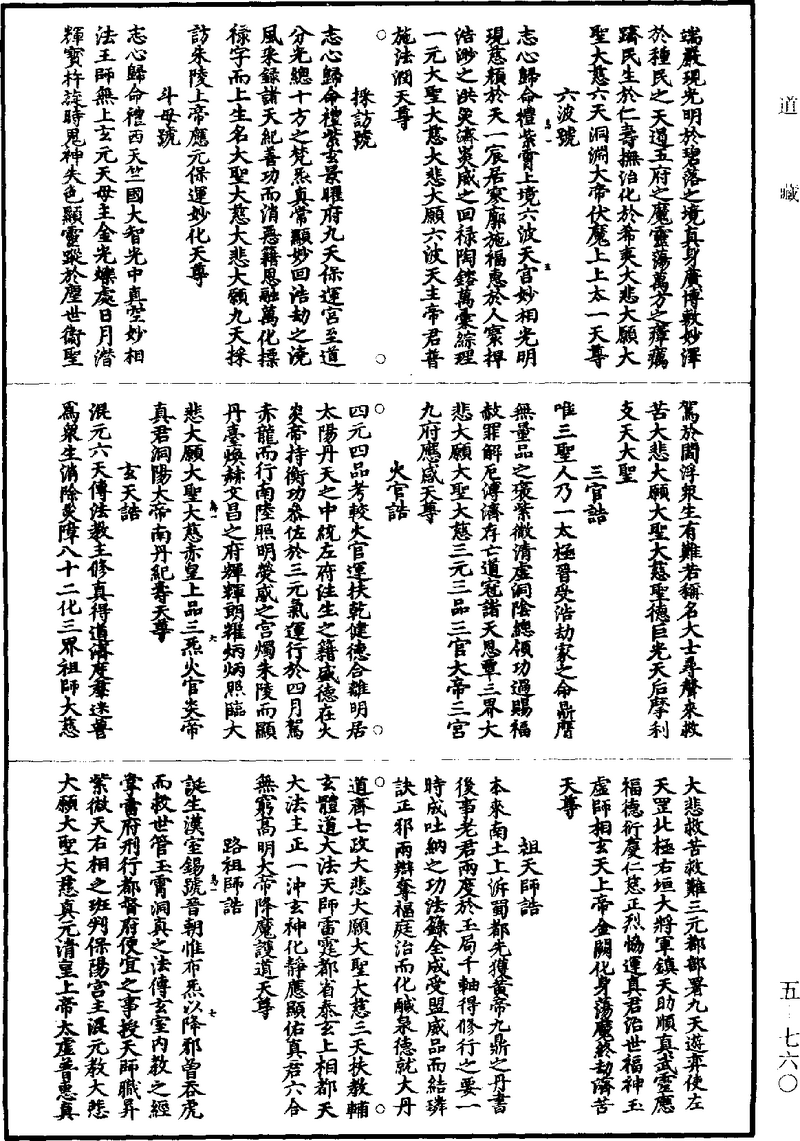 道藏
端嚴現光明於碧落之境真身廣博敷妙澤
於種民之天遏五府之魔靈蕩萬方之瘴癘
躋民生於仁壽撫治化於希夷大悲大願大
聖大慈六天洞淵大帝伏魔上上太一天尊
六波號
志心歸命禮紫霄上境六波天宮妙相光明
現慈顏於天一宸居寥廓施福惠於人寰捍
浩渺之洪災濟炎威之回祿陶鎔萬彙綜理
一元大聖大慈大悲大願六波天主帝君普
施法潤天尊
採訪號
志心歸命禮紫玄景曜府九天保運宮至道
分光總十方之梵炁真常顯妙回浩劫之澆
風采錄諸天紀善功而消惡籍恩融萬化標
祿字而上生名大聖大慈大悲大願九天採
訪朱陵上帝應元保運妙化天尊
斗母號
志心歸命禮西天竺國大智光中真空妙相
法王師無上玄元天母主金光爍處日月潛
輝寶杵旋時鬼神失色顯靈蹤於塵世衞聖
駕於閻浮眾生有難若稱名大士尋聲來救
苦大悲大願大聖大慈聖德巨光天后摩利
支天大聖
三官誥
唯三聖人乃一太極晉受浩劫家之命鼎膺
無量品之褒紫微清虛洞陰總領功過賜福
赦罪解厄溥濟存亡道冠諸天恩覃三界大
悲大願大聖大慈三元三品三官大帝三宮
九府應感天尊
火官誥
四元四品考較火官運扶乾健德合離明居
太陽丹天之中統左府注生之籍盛德在火
炎帝持衡功叅佐於三元氣運行於四月駕
赤龍而行南陸照明熒惑之宮燭朱陵而顯
丹臺煥赫文昌之府輝輝朗耀炳炳照臨大
悲大願大聖大慈赤皇上品三炁火官炎帝
真君洞陽大帝南丹紀壽天尊
玄天誥
混元六天傳法教主修真得道濟度羣迷普
爲眾生消除災障八十二化三界祖師大慈
大悲救苦救難三元都部署九天遊弈使左
天罡北極右垣大將軍鎮天助順真武靈應
福德衍慶仁慈正烈協運真君治世福神玉
虛師相玄天上帝金闕化身蕩魔終劫濟苦
天尊
祖天師誥
本來南土上泝蜀都先獲黃帝九鼎之丹書
後事老君兩度於玉局千軸得修行之要一
時成吐納之功法籙全成受盟威品而結璘
訣正邪兩辯奪福庭治而化鹹泉德就大丹
道齊七政大悲大願大聖大慈三天扶教輔
玄體道大法天師雷霆都省泰玄上相都天
大法主正一沖玄神化靜應顯佑真君六合
無窮高明大帝降魔護道天尊
路祖師誥
誕生漢室錫號晉朝惟布炁以降邪曾吞虎
而救世管玉霄洞真之法傳玄室內教之經
掌書府刑行都督府便宜之事授天師職昇
紫微天右相之班判保陽宮主混元教大悲
大願大聖大慈真元清皇上帝太虛普惠真
五—七六〇